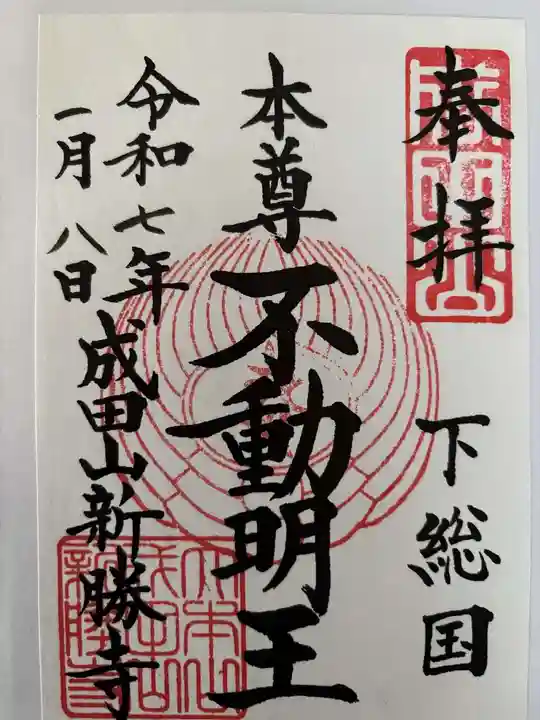 奉拝
下総国
本尊不動明王
令和七年
一月八日
成田山新勝寺
成田山